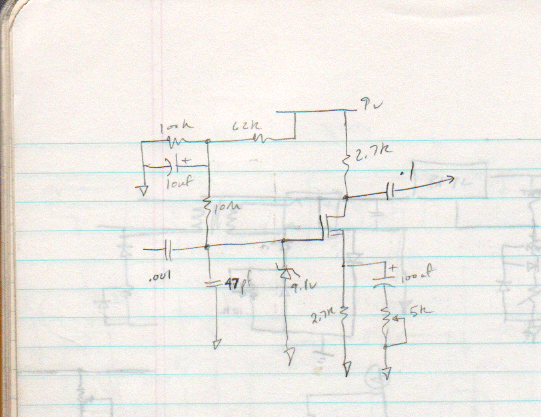 9v
100k
62k
2.7k
.1
10uf
10M
.001
47pf
9.1v
100uf
2.7k
5k